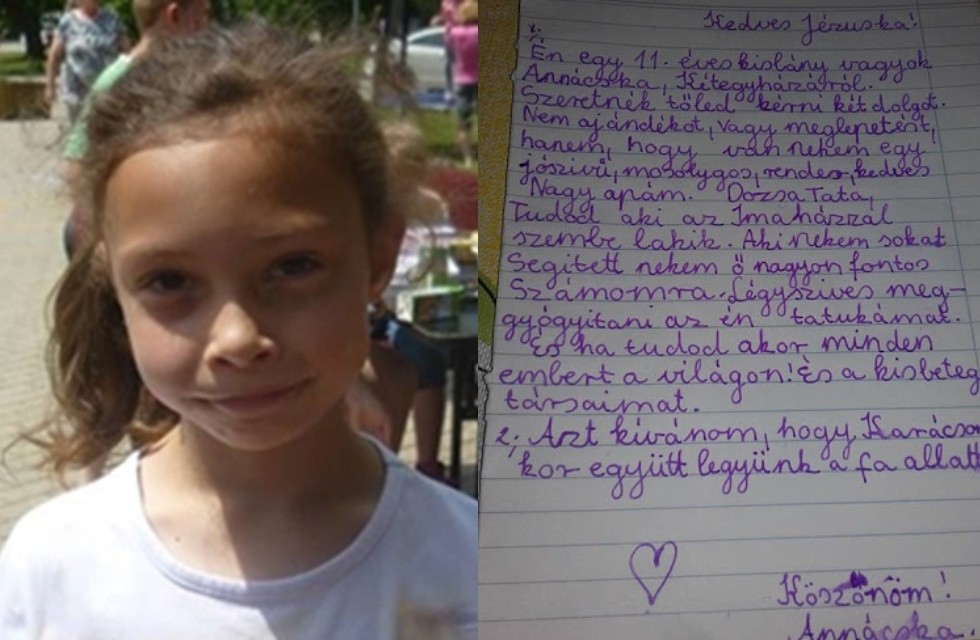 Kedves Jézuska!
1.
Én egy 11. éves kislány vagyok
Annácska, Kétegyházáról.
Szeretnék tőled kérni két dolgot.
Nem ajándékot, vagy meglepetést,
hanem, hogy van nekem egy
jószívű, mosolygos, rendes, kedves
Nagy apám. Dózsa Tata,
Tudod aki az Imaházzal
szembe lakik. Aki nekem sokat
segített nekem ő nagyon fontos
Számomra. Légyszives meg-
gyógyítani az én tatukámat.
És ha tudod akor minden
embert a világon! És a kisbeteg
társaimat.
2; Azt kívánom, hogy Karácson
kor együtt legyünk a fa allatt
Köszönöm!
Annácska